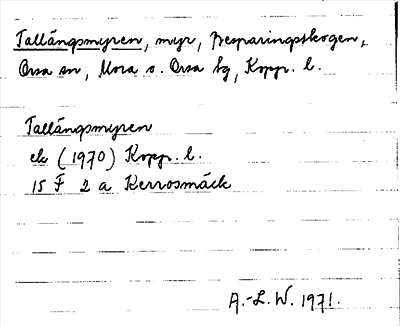 Tallängsmyren, myr, Besparingsskogen,
Orsa sn, Mora o. Orsa tg, Kopp. l.
Tallängsmyren
ek (1970) Kopp. l.
15 F 2 a Kerrosmäck
A.-L. W. 1971.